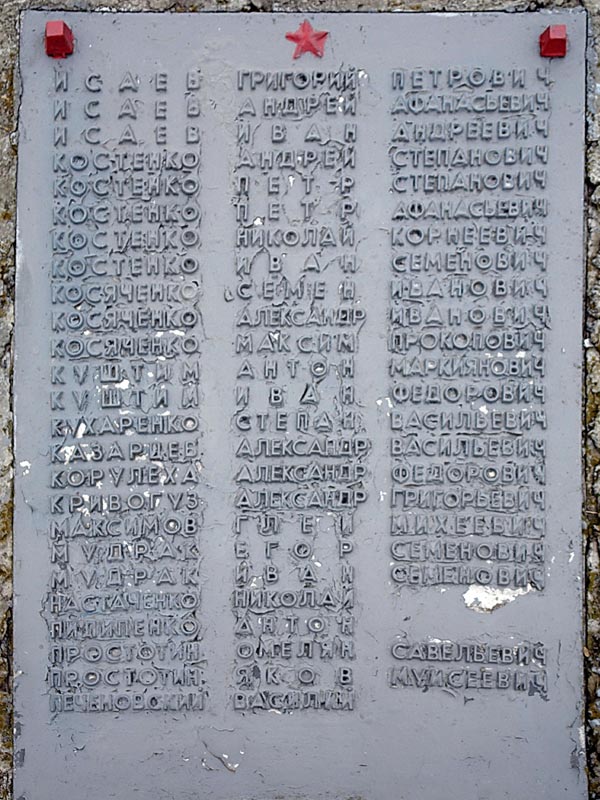 ИСАЕВ ГРИГОРИЙ ПЕТРОВИЧ
ИСАЕВ АНДРЕЙ АФАНАСЬЕВИЧ
ИСАЕВ ИВАН АНДРЕЕВИЧ
КОСТЕНКО АНДРЕЙ СТЕПАНОВИЧ
КОСТЕНКО ПЕТР СТЕПАНОВИЧ
КОСТЕНКО ПЕТР АФАНАСЬЕВИЧ
КОСТЕНКО НИКОЛАЙ КОРНЕЕВИЧ
КОСТЕНКО ИВАН СЕМЕНОВИЧ
КОСЯЧЕНКО СЕМЕН ИВАНОВИЧ
КОСЯЧЕНКО АЛЕКСАНДР ИВАНОВИЧ
КОСЯЧЕНКО МАКСИМ ПРОКОПОВИЧ
КУШТИМ АНТОН МАРКИЯНОВИЧ
КУШТИМ ИВАН ФЕДОРОВИЧ
КУХАРЕНКО СТЕПАН ВАСИЛЬЕВИЧ
КАЗАРЦЕВ АЛЕКСАНДР ВАСИЛЬЕВИЧ
КОРУЛЕХА АЛЕКСАНДР ФЕДОРОВИЧ
КРИВОГУЗ АЛЕКСАНДР ГРИГОРЬЕВИЧ
МАКСИМОВ МИХЕЕВИЧ
МУДРАК ЕГОР СЕМЕНОВИЧ
МУДРАК ИВАН СЕМЕНОВИЧ
НАСТАЧЕНКО НИКОЛАЙ
ПИЛИПЕНКО АНТОН
ПРОСТОТИН ОМЕЛЯН САВЕЛЬЕВИЧ
ПРОСТОТИН ЯКОВ МУИСЕЕВИЧ
ПЕЧЕНОВСКИЙ ВАСИЛИЙ